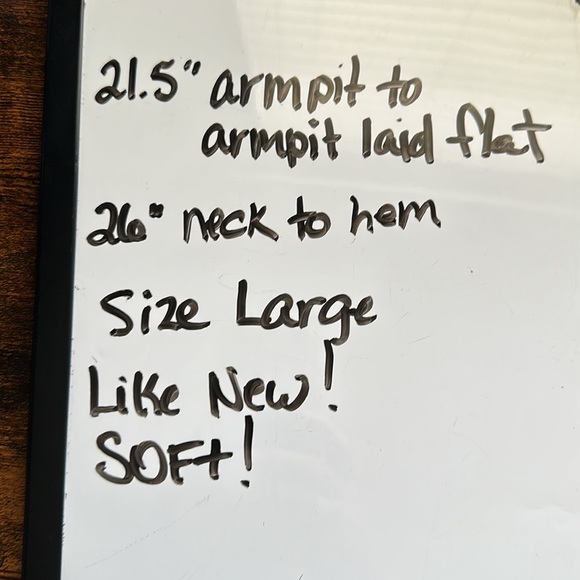 21.5" armpit to
armpit laid flat
26" neck to hem
Size Large
Like New!
SOFt!